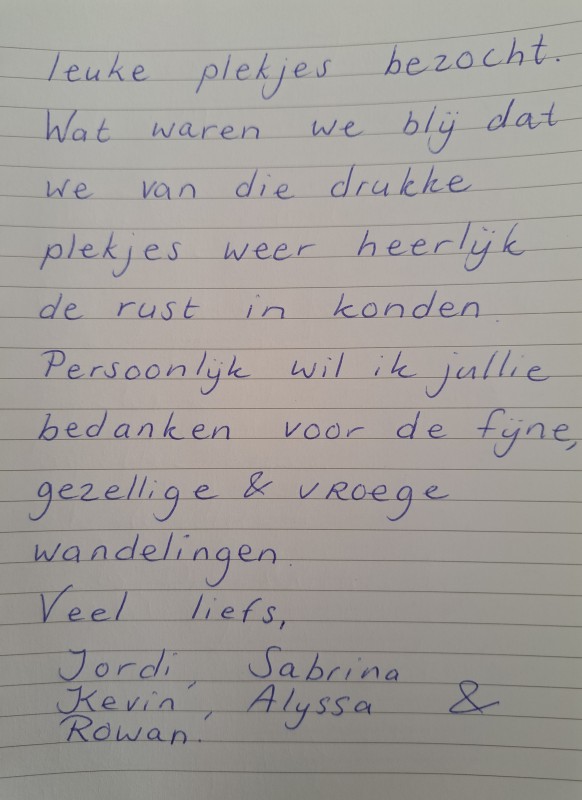 leuke plekjes bezocht.
Wat waren we blij dat
we van die drukke
plekjes weer heerlijk
de rust in konden.
Persoonlijk wil ik jullie
bedanken voor de fijne,
gezellige & vroege
wandelingen.
Veel liefs,
Jordi, Sabrina
Kevin, Alyssa &
Rowan.